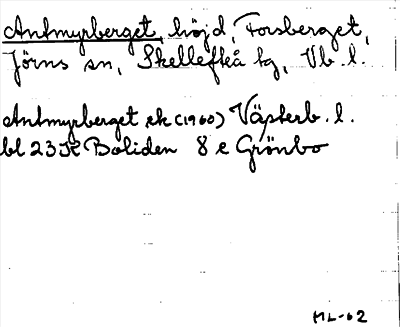 Antmyrberget, höjd, Forsberget,
Jörns sn, Skellefteå kg, Vb. l.
Antmyrberget ek (1960) Västerb. l.
bl 23 K Boliden 8 e Grönbo
ML-62